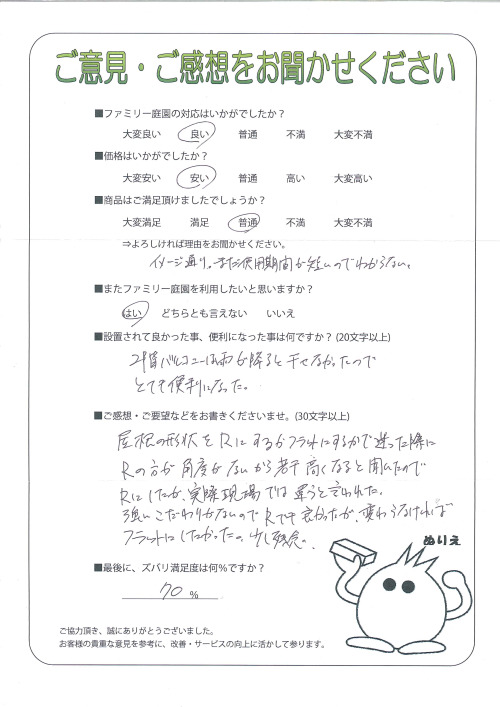 ご意見・ご感想をお聞かせください
■ファミリー庭園の対応はいかがでしたか？
大変良い 良い 普通 不満 大変不満
■価格はいかがでしたか？
大変安い 安い 普通 高い 大変高い
■商品はご満足頂けましたでしょうか？
大変満足 満足 普通 不満 大変不満
⇒よろしければ理由をお聞かせください。
イメージ通り。まだ使用期間が短いのでわからない。
■またファミリー庭園を利用したいと思いますか？
はい どちらとも言えない いいえ
■設置されて良かった事、便利になった事は何ですか？(20文字以上)
2階バルコニーは雨が降ると干せなかったので
とても便利になった。
■ご感想・ご要望などをお書きくださいませ。(30文字以上)
屋根の形状をRにするかフラットにするかで迷った際に
Rの方が角度がないから若干高くなると聞いたので
Rにしたが、実際現場では違うと言われた。
強いこだわりがないのでRでも良かったが、変わらなければ
フラットにしたかったの。少し残念。
■最後に、ズバリ満足度は何％ですか？
70 %
ぬりえ
ご協力頂き、誠にありがとうございました。
お客様の貴重な意見を参考に、改善・サービスの向上に活かして参ります。